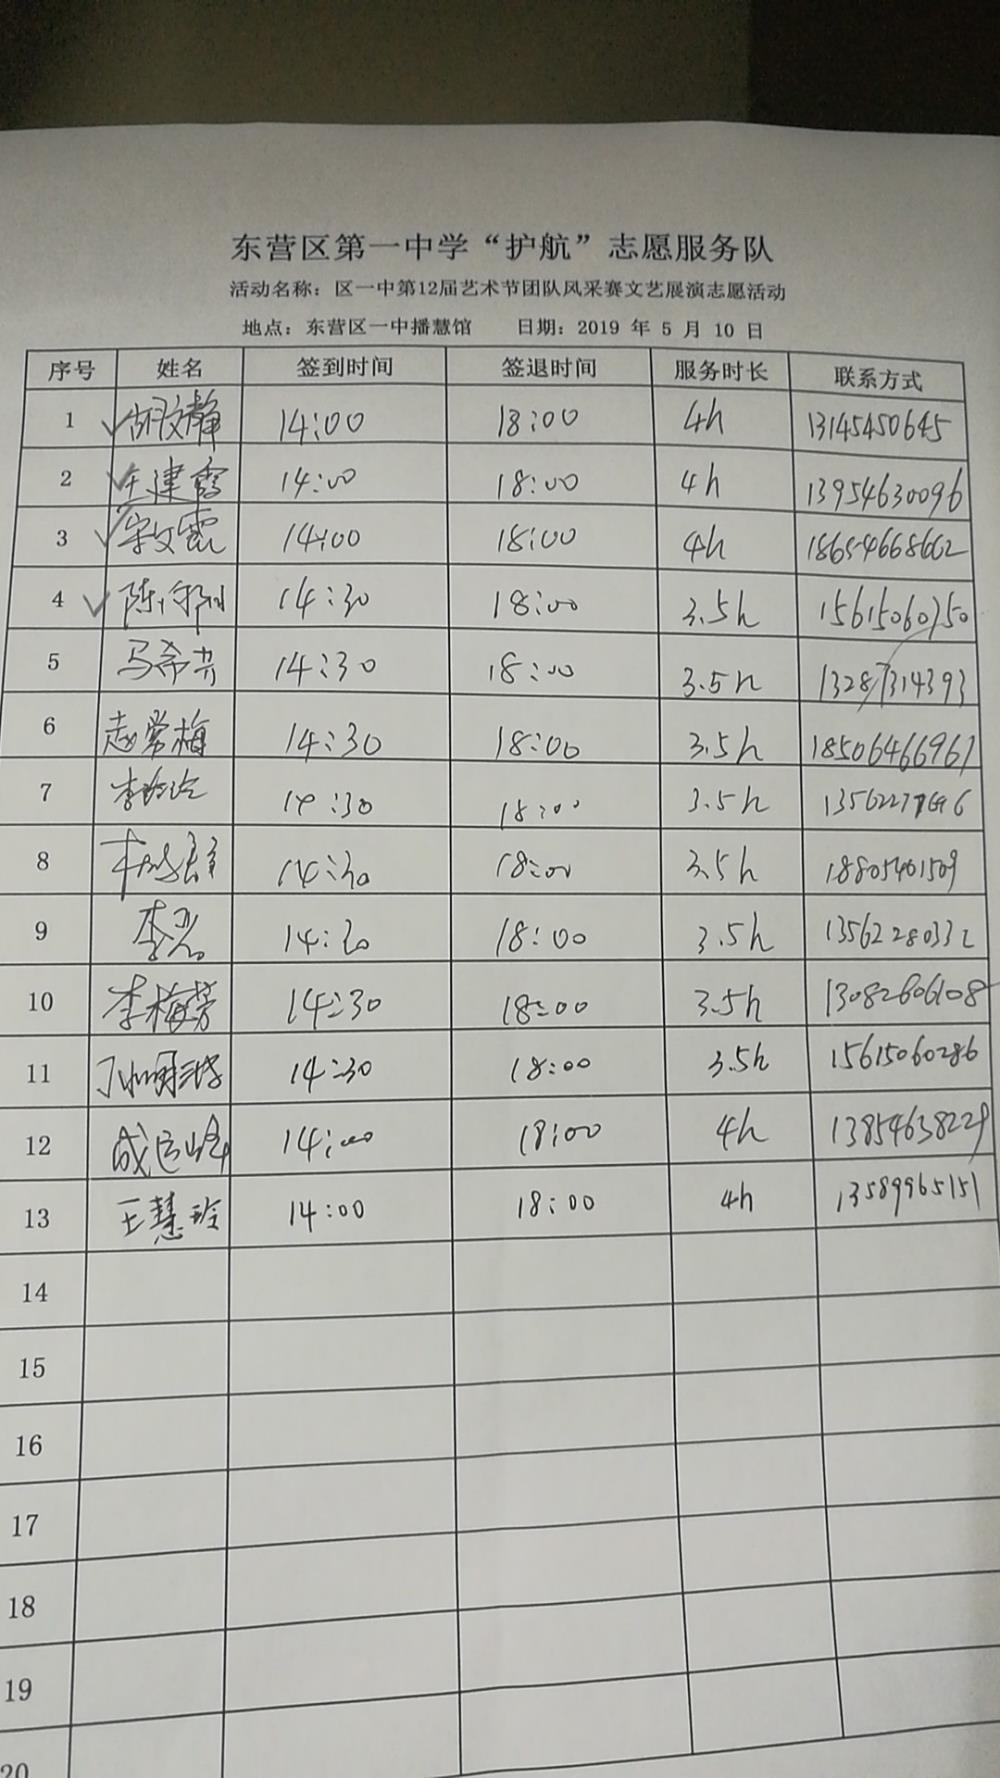 东营区第一中学“护航”志愿服务队
活动名称：区一中第12届艺术节团队风采赛文艺展演志愿活动
地点：东营区一中播慧馆 日期：2019 年 5 月 10 日
序号 姓名 签到时间 签退时间 服务时长 联系方式
1 胡文静 14:00 18:00 4h 13145450645
2 王建霞 14:00 18:00 4h 13954630096
3 宋文霞 14:00 18:00 4h 18654668662
4 14:30 18:00 3.5h 15615060750
5 14:30 18:00 3.5h 13287314393
6 赵常梅 14:30 18:00 3.5h 18506466967
7 14:30 18:00 3.5h
8 14:30 18:00 3.5h 18805401509
9 14:30 18:00 3.5h 13562280332
10 李梅芳 14:30 18:00 3.5h 13082606108
11 14:30 18:00 3.5h 15615060286
12 14:00 18:00 4h 13854638229
13 王慧玲 14:00 18:00 4h 13589965151
14
15
16
17
18
19
20